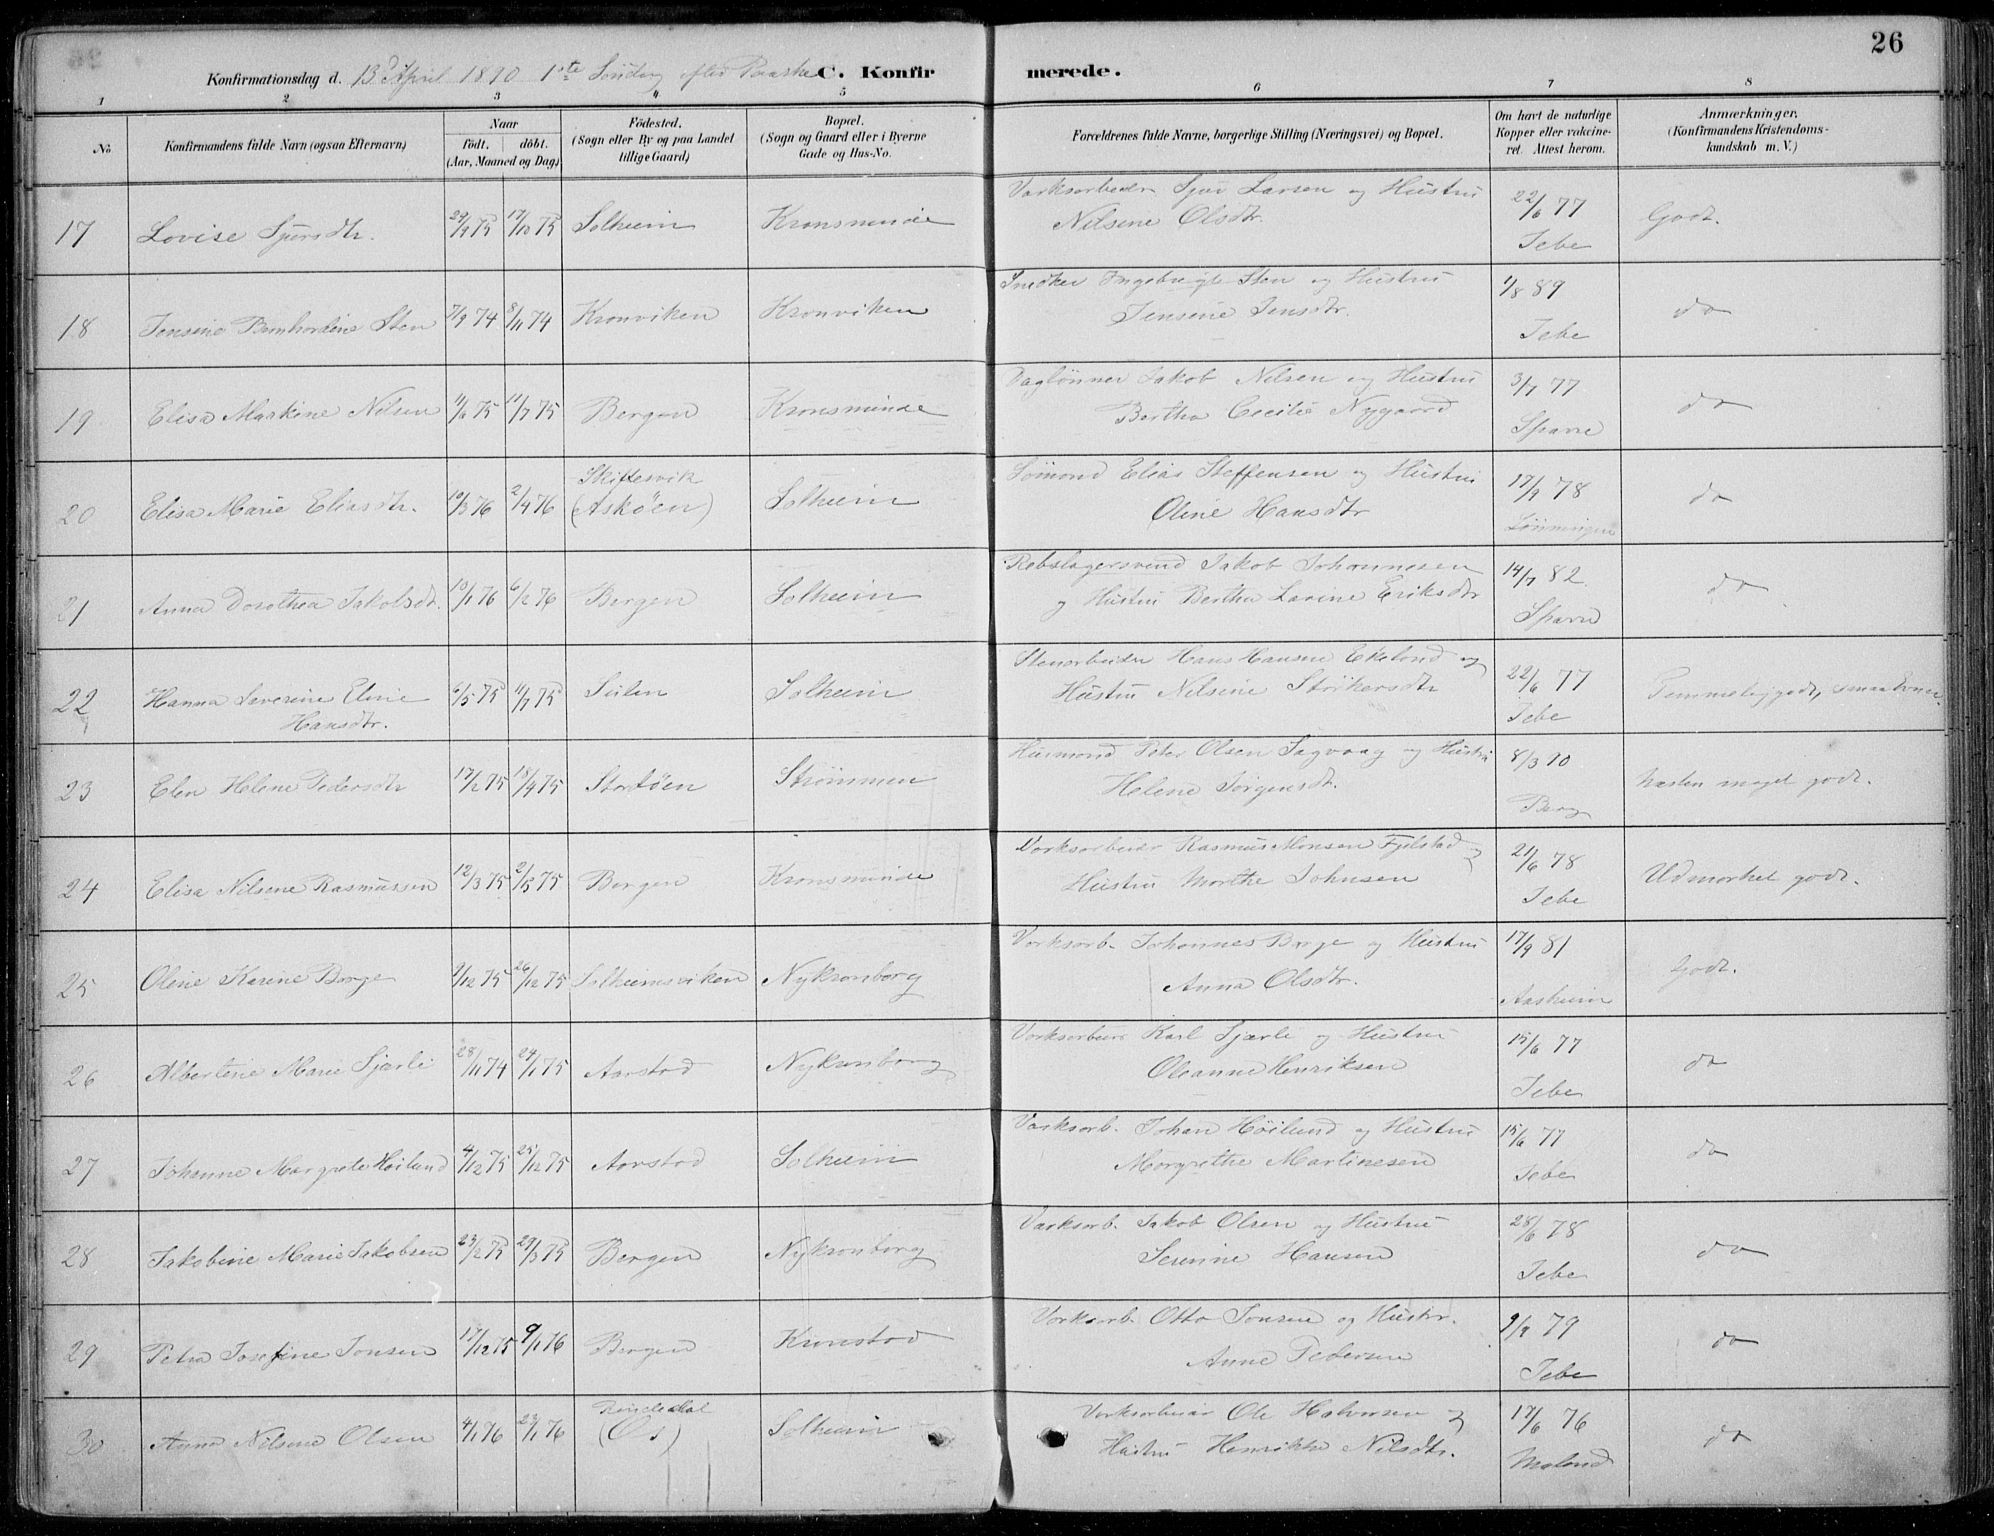 26
Konfirmationsdag d. 13 April 1890 1ste Søndag efter Paaske C. Konfirmerede.
1 2 3 4 5 6 7 8
No
Konfirmandens fulde Navn (ogsaa Efternavn)
Naar
født. døbt.
(Aar, Maaned og Dag)
Fødested.
(Sogn eller By og paa Landet
tillige Gaard)
Bopæl.
(Sogn og Gaard eller i Byerne
Gade og Hus-No.
Forældrenes fulde Navne, borgerlige Stilling (Næringsvei) og Bopæl.
Om havt de naturlige
Kopper eller vakcine-
ret. Attest herom.
Anmærkninger.
(Konfirmandens Kristendoms-
kundskab m. V.)
17 Lovise Sjursdtr. 29/9 75 17/10 75 Solheim Kronsminde
Værksarbeider Sjur Larsen og Hustru
Nilsine Olsdtr. 22/6 77
Jebe Godt.
18 Jensine Bernhardine Sten 7/9 74 8/11 74 Kronviken Kronviken
Snedker Ingebrigt Sten og Hustru
Jensine Jensdtr. 1/8 89
Jebe do
19 Elisa Maskine Nilsen 11/6 75 11/7 75 Bergen Kronsminde
Daglønner Jakob Nilsen og Hustru
Bertha Cecilie Nygaard 3/7 77
Sparre do
20 Elisa Marie Eliasdtr. 10/3 76 2/4 76 Skiftesvik
(Askøen) Solheim
Sømand Elias Steffensen og Hustru
Oline Hansdtr 17/9 78
do
21 Anna Dorothea Jakobsdtr. 10/1 76 6/2 76 Bergen Solheim
Rebslagersvend Jakob Johannesen
og Hustru Bertha Lavine Eriksdtr 14/7 82
Sparre do
22 Hanna Severine Eline
Hansdtr. 6/5 75 11/7 75 Sulen Solheim
Stenarbeider Hans Hansen Ekeland og
Hustru Nilsine Størkersdtr 22/6 77
Jebe Temmelig godt,
23 Elen Helene Pedersdtr 17/2 75 18/9 75 Stordøen Strømmen
Husmand Peter Olsen Sagvaag og Hustru
Helene Jørgensdtr. 8/3 90
Berg næsten meget godt.
24 Elisa Nilsine Rasmussen 12/3 75 2/5 75 Bergen Kronsminde
Værksarbeider Rasmus Monsen Fjelstad og
Hustru Marthe Johnsen 21/6 78
Jebe Udmærket godt.
25 Oline Karine Borge 9/12 75 26/12 75 Solheimsviken Nykronborg
Værksarb. Johannes Borge og Hustru
Anna Olsdtr. 17/9 81
Aasheim Godt.
26 Albertine Marie Sjærli 28/11 74 24/1 75 Aarstad Nykronborg
Karl Sjærle og Hustru
Oleanne Henriksen 15/6 77
Jebe do
27 Johanne Margrete Høilund 4/12 75 25/12 75 Aarstad Solheim
Værksarb. Johan Høilund og Hustru
Margrethe Martinesen 15/6 77
Jebe do
28 Jakobine Marie Jakobsen 23/2 75 29/3 75 Bergen Nykronborg
Værksarb. Jakob Olsen og Hustru
Serine Hansen 28/6 78
Jebe do
29 Petra Josefine Jonsen 17/12 75 9/1 76 Bergen Kronstad
Værksarb. Otto Jonsen og Hustr.
Anne Pedersen 9/9 79
Jebe do
30 Anna Nilsine Olsen 4/1 76 23/1 76
(Os) Solheim
Værksarbeider Ole Halvorsen og
Hustru Henrikke Nilsdtr. 17/6 76
Moland do